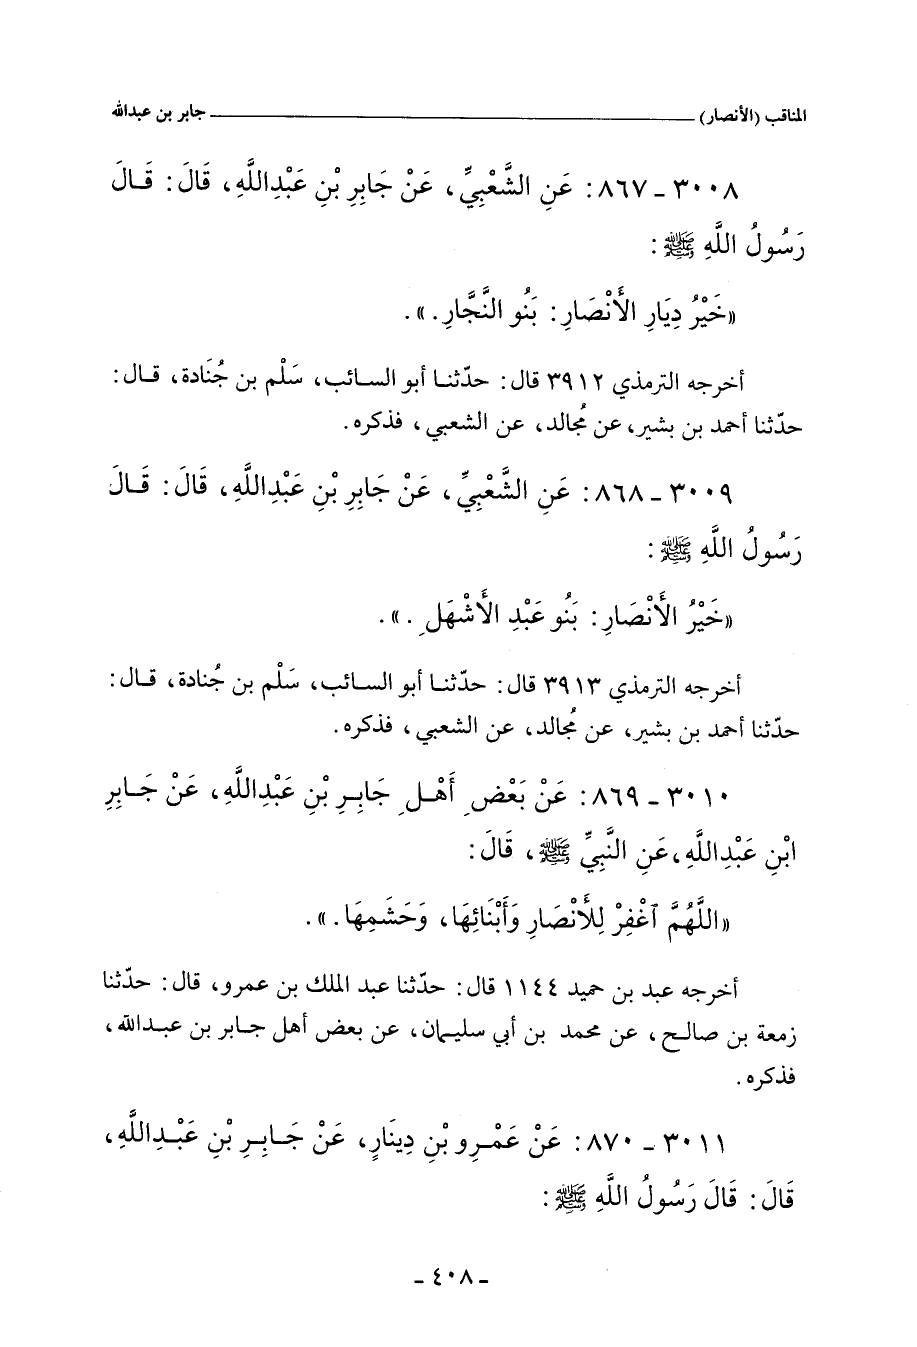 المناقب (الأنصار) ــــــــــــــ جابر بن عبدالله
٣٠٠٨ ـ ٨٦٧: عَنِ الشَّعْبِيِّ، عَنْ جَابِرِ بْنِ عَبْدِاللَّهِ، قَالَ: قَالَ
رَسُولُ اللَّهِ ﷺ:
«خَيْرُ دِيَارِ الأَنْصَارِ: بَنُو النَّجَّارِ.».
أخرجه الترمذي ٣٩١٢ قال: حدّثنا أبو السائب، سَلْم بن جُنَادة، قال:
حدّثنا أحمد بن بشير، عن مُجالد، عن الشعبي، فذكره.
٣٠٠٩ ـ ٨٦٨: عَنِ الشَّعْبِيِّ، عَنْ جَابِرِ بْنِ عَبْدِاللَّهِ، قَالَ: قَالَ
رَسُولُ اللَّهِ ﷺ:
«خَيْرُ الأَنْصَارِ: بَنُو عَبْدِ الأَشْهَلِ.».
أخرجه الترمذي ٣٩١٣ قال: حدّثنا أبو السائب، سَلْم بن جُنادة، قال:
حدّثنا أحمد بن بشير، عن مُجالد، عن الشعبي، فذكره.
٣٠١٠ ـ ٨٦٩: عَنْ بَعْضِ أَهْلِ جَابِرِ بْنِ عَبْدِاللَّهِ، عَنْ جَابِرِ
ابْنِ عَبْدِاللَّهِ، عَنِ النَّبِيِّ ﷺ، قَالَ:
«اللَّهُمَّ ٱغْفِرْ لِلأَنْصَارِ وَأَبْنَائِهَا، وَحَشَمِهَا.».
أخرجه عبد بن حميد ١١٤٤ قال: حدّثنا عبد الملك بن عمرو، قال: حدّثنا
زمعة بن صالح، عن محمد بن أبي سليمان، عن بعض أهل جابر بن عبدالله،
فذكره.
٣٠١١ ـ ٨٧٠: عَنْ عَمْرِو بْنِ دِينَارٍ، عَنْ جَابِرِ بْنِ عَبْدِاللَّهِ،
قَالَ: قَالَ رَسُولُ اللَّهِ ﷺ:
ـ ٤٠٨ ـ